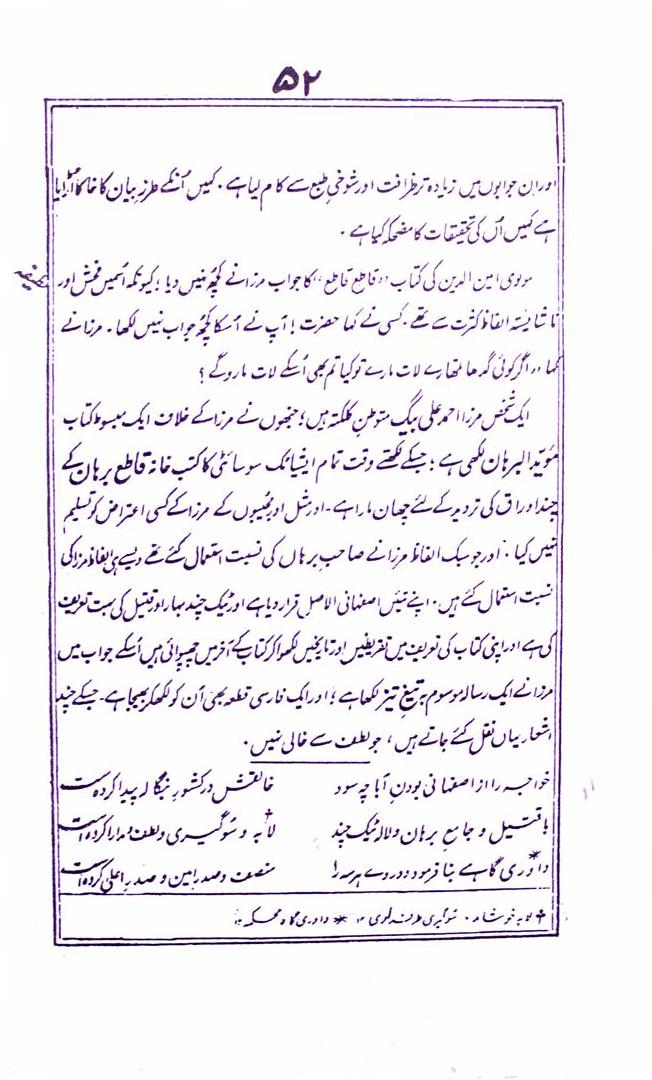 ۵۲
اور ان جوابوں میں زیادہ تر ظرافت اور شوخیِ طبع سے کام لیا ہے ۔ کہیں اُنکے طرزِ بیان کا خاکا اُڑایا
ہے کہیں اُن کی تحقیقات کا مضحکہ کیا ہے ۔
مولوی امین الدین کی کتاب "قاطع قاطع" کا جواب مرزا نے کچھ نہیں دیا ؛ کیونکہ اُسمیں فحش اور
نا شایستہ الفاظ کثرت سے تھے ۔ کسی نے کہا حضرت ! آپ نے اُسکا کچھ جواب نہیں لکھا ۔ مرزا نے
کہا "اگر کوئی گدھا تمھارے لات مارے تو کیا تم بھی اُسکے لات ماروگے ؟
ایک شخص مرزا احمد علی بیگ متوطنِ کلکتہ ہیں ؛ جنھوں نے مرزا کے خلاف ایک مبسوط کتاب
مؤید البرہان لکھی ہے ؛ جسکے لکھتے وقت تمام ایشیاٹک سوسائٹی کا کتب خانہ قاطع برہان کے
چند اوراق کی تردید کے لئے چھان مارا ہے ۔ اور مثل اوربھیوں کے مرزا کے کسی اعتراض کو تسلیم
نہیں کیا ۔ اور جو سبک الفاظ مرزا نے صاحبِ برہاں کی نسبت استعمال کئے تھے ویسے ہی الفاظ مرزا کی
نسبت استعمال کئے ہیں ۔ اپنے تئیں اصفہانی الاصل قرار دیا ہے اور ٹیک چند بہار اور قتیل کی بہت تعریف
کی ہے اور اپنی کتاب کی تعریف میں تقریظیں اور تاریخیں لکھوا کر کتاب کے آخر میں چھپوائی ہیں اُسکے جواب میں
مرزا نے ایک رسالہ موسوم بہ تیغِ تیز لکھا ہے ؛ اور ایک فارسی قطعہ بھی اُن کو لکھکر بھیجا ہے ۔ جسکے چند
اشعار یہاں نقل کئے جاتے ہیں ، جو لطف سے خالی نہیں ۔
خواجہ را از اصفہانی بودنِ آبا چہ سود خالقش در کشورِ بنگالہ پیدا کردہ است
با قتیل و جامعِ برہان و لالہ ٹیک چند لابہ و سوگیری و لطف و مدارا کردہ است
داوری گاہے بنا فرمود و در وے ہر سہ را منصف و صدر امین و صدرِ اعلیٰ کردہ است
لابہ خوشامد ۰ سوگیری طرفداری ۱۲ * داوری گاہ محکمہ ۱۲